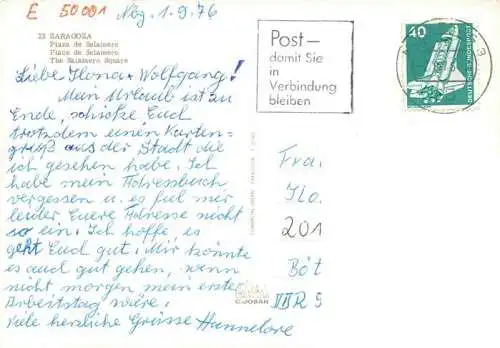 E 50001 Nbg, 1.9.76
23 ZARAGOZA
Plaza de Salamero
Place de Salamero
The Salamero Square
Post –
damit Sie
in
Verbindung
bleiben
40
DEUTSCHE BUNDESPOST
Liebe Ilona + Wolfgang!
Mein Urlaub ist zu
Ende, schicke Euch
trotzdem einen Karten=
gruß aus der Stadt die
ich gesehen habe. Ich
habe mein Adressbuch
vergessen u. es fiel mir
leider Euere Adresse nicht
so ein. Ich hoffe es
geht Euch gut. Mir könnte
es auch gut gehen, wenn
nicht morgen mein erster
Arbeitstag wäre.
Viele herzliche Grüsse Hannelore
Fra.
Ilo.
201
Böt
VIII R 5